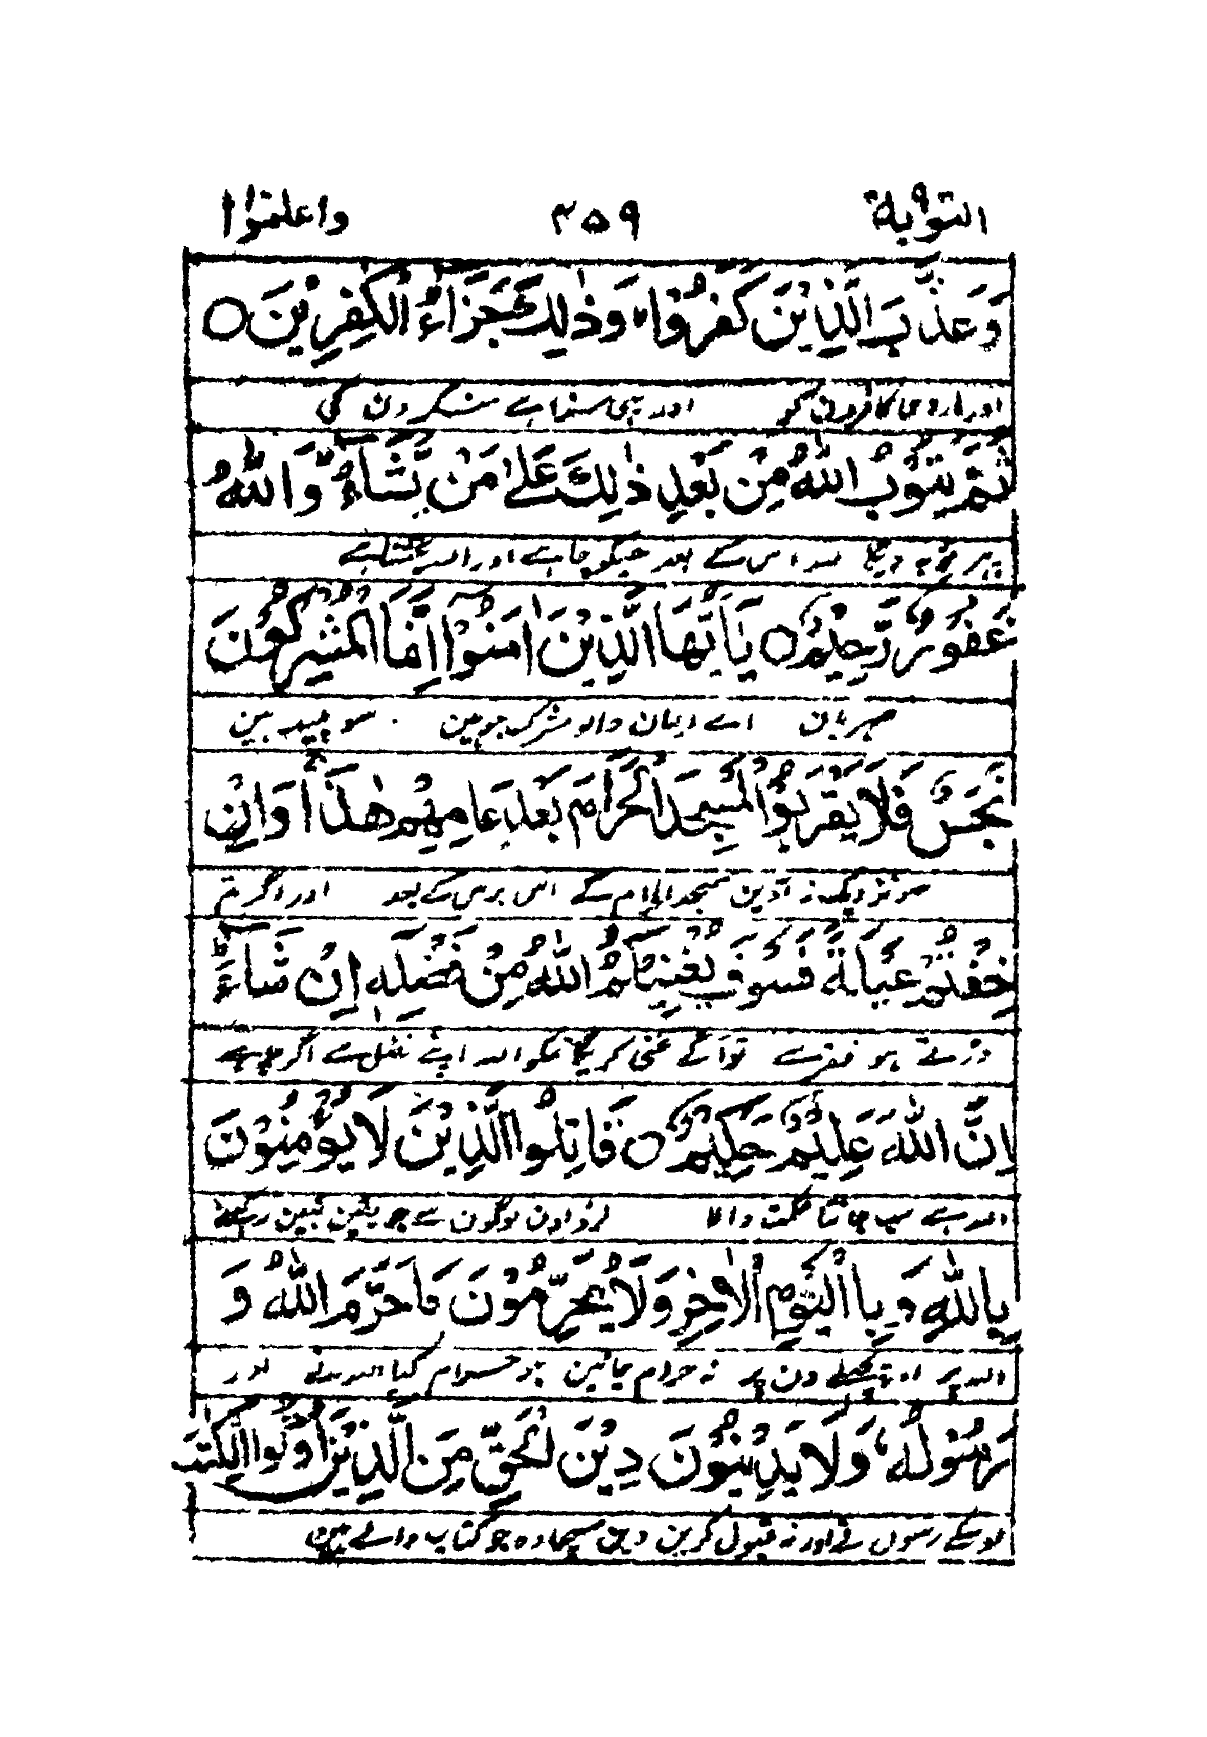 التوبة ٩ ٤٥٩ واعلموا
وَعَذَّبَ الَّذِيْنَ كَفَرُوْا وَذٰلِكَ جَزَآءُ الْكٰفِرِيْنَ ○
اور مار دی کافرون کو اور یہی سزا ہے منکرون کی
ثُمَّ يَتُوْبُ اللّٰهُ مِنْۢ بَعْدِ ذٰلِكَ عَلٰى مَنْ يَّشَآءُ وَاللّٰهُ
پہر توبہ دیگا اللہ اس کے بعد جسکو چاہے اور اللہ بخشتا ہے
غَفُوْرٌ رَّحِيْمٌ ○ يٰٓاَيُّهَا الَّذِيْنَ اٰمَنُوْٓا اِنَّمَا الْمُشْرِكُوْنَ
مہربان اے ایمان والو مشرک جو ہین سو پلید ہین
نَجَسٌ فَلَا يَقْرَبُوا الْمَسْجِدَ الْحَرَامَ بَعْدَ عَامِهِمْ هٰذَا وَاِنْ
سو نزدیک نہ آوین مسجد الحرام کے اس برس کے بعد اور اگر تم
خِفْتُمْ عَيْلَةً فَسَوْفَ يُغْنِيْكُمُ اللّٰهُ مِنْ فَضْلِهٖٓ اِنْ شَآءَ
ڈرتے ہو فقر سے تو آگے غنی کریگا تمکو اللہ اپنے فضل سے اگر چاہے
اِنَّ اللّٰهَ عَلِيْمٌ حَكِيْمٌ ○ قَاتِلُوا الَّذِيْنَ لَا يُؤْمِنُوْنَ
اللہ ہے سب جانتا حکمت والا لڑو اون لوگون سے جو یقین نہین رکھتے
بِاللّٰهِ وَبِالْيَوْمِ الْاٰخِرِ وَلَا يُحَرِّمُوْنَ مَا حَرَّمَ اللّٰهُ وَ
اللہ پر اور پچھلے دن پر نہ حرام جانین جو حرام کیا اللہ نے اور
رَسُوْلُهٗ وَلَا يَدِيْنُوْنَ دِيْنَ الْحَقِّ مِنَ الَّذِيْنَ اُوْتُوا الْكِتٰبَ
اوسکے رسول نے اور نہ قبول کرین دین سچا وہ جو کتاب والے ہین